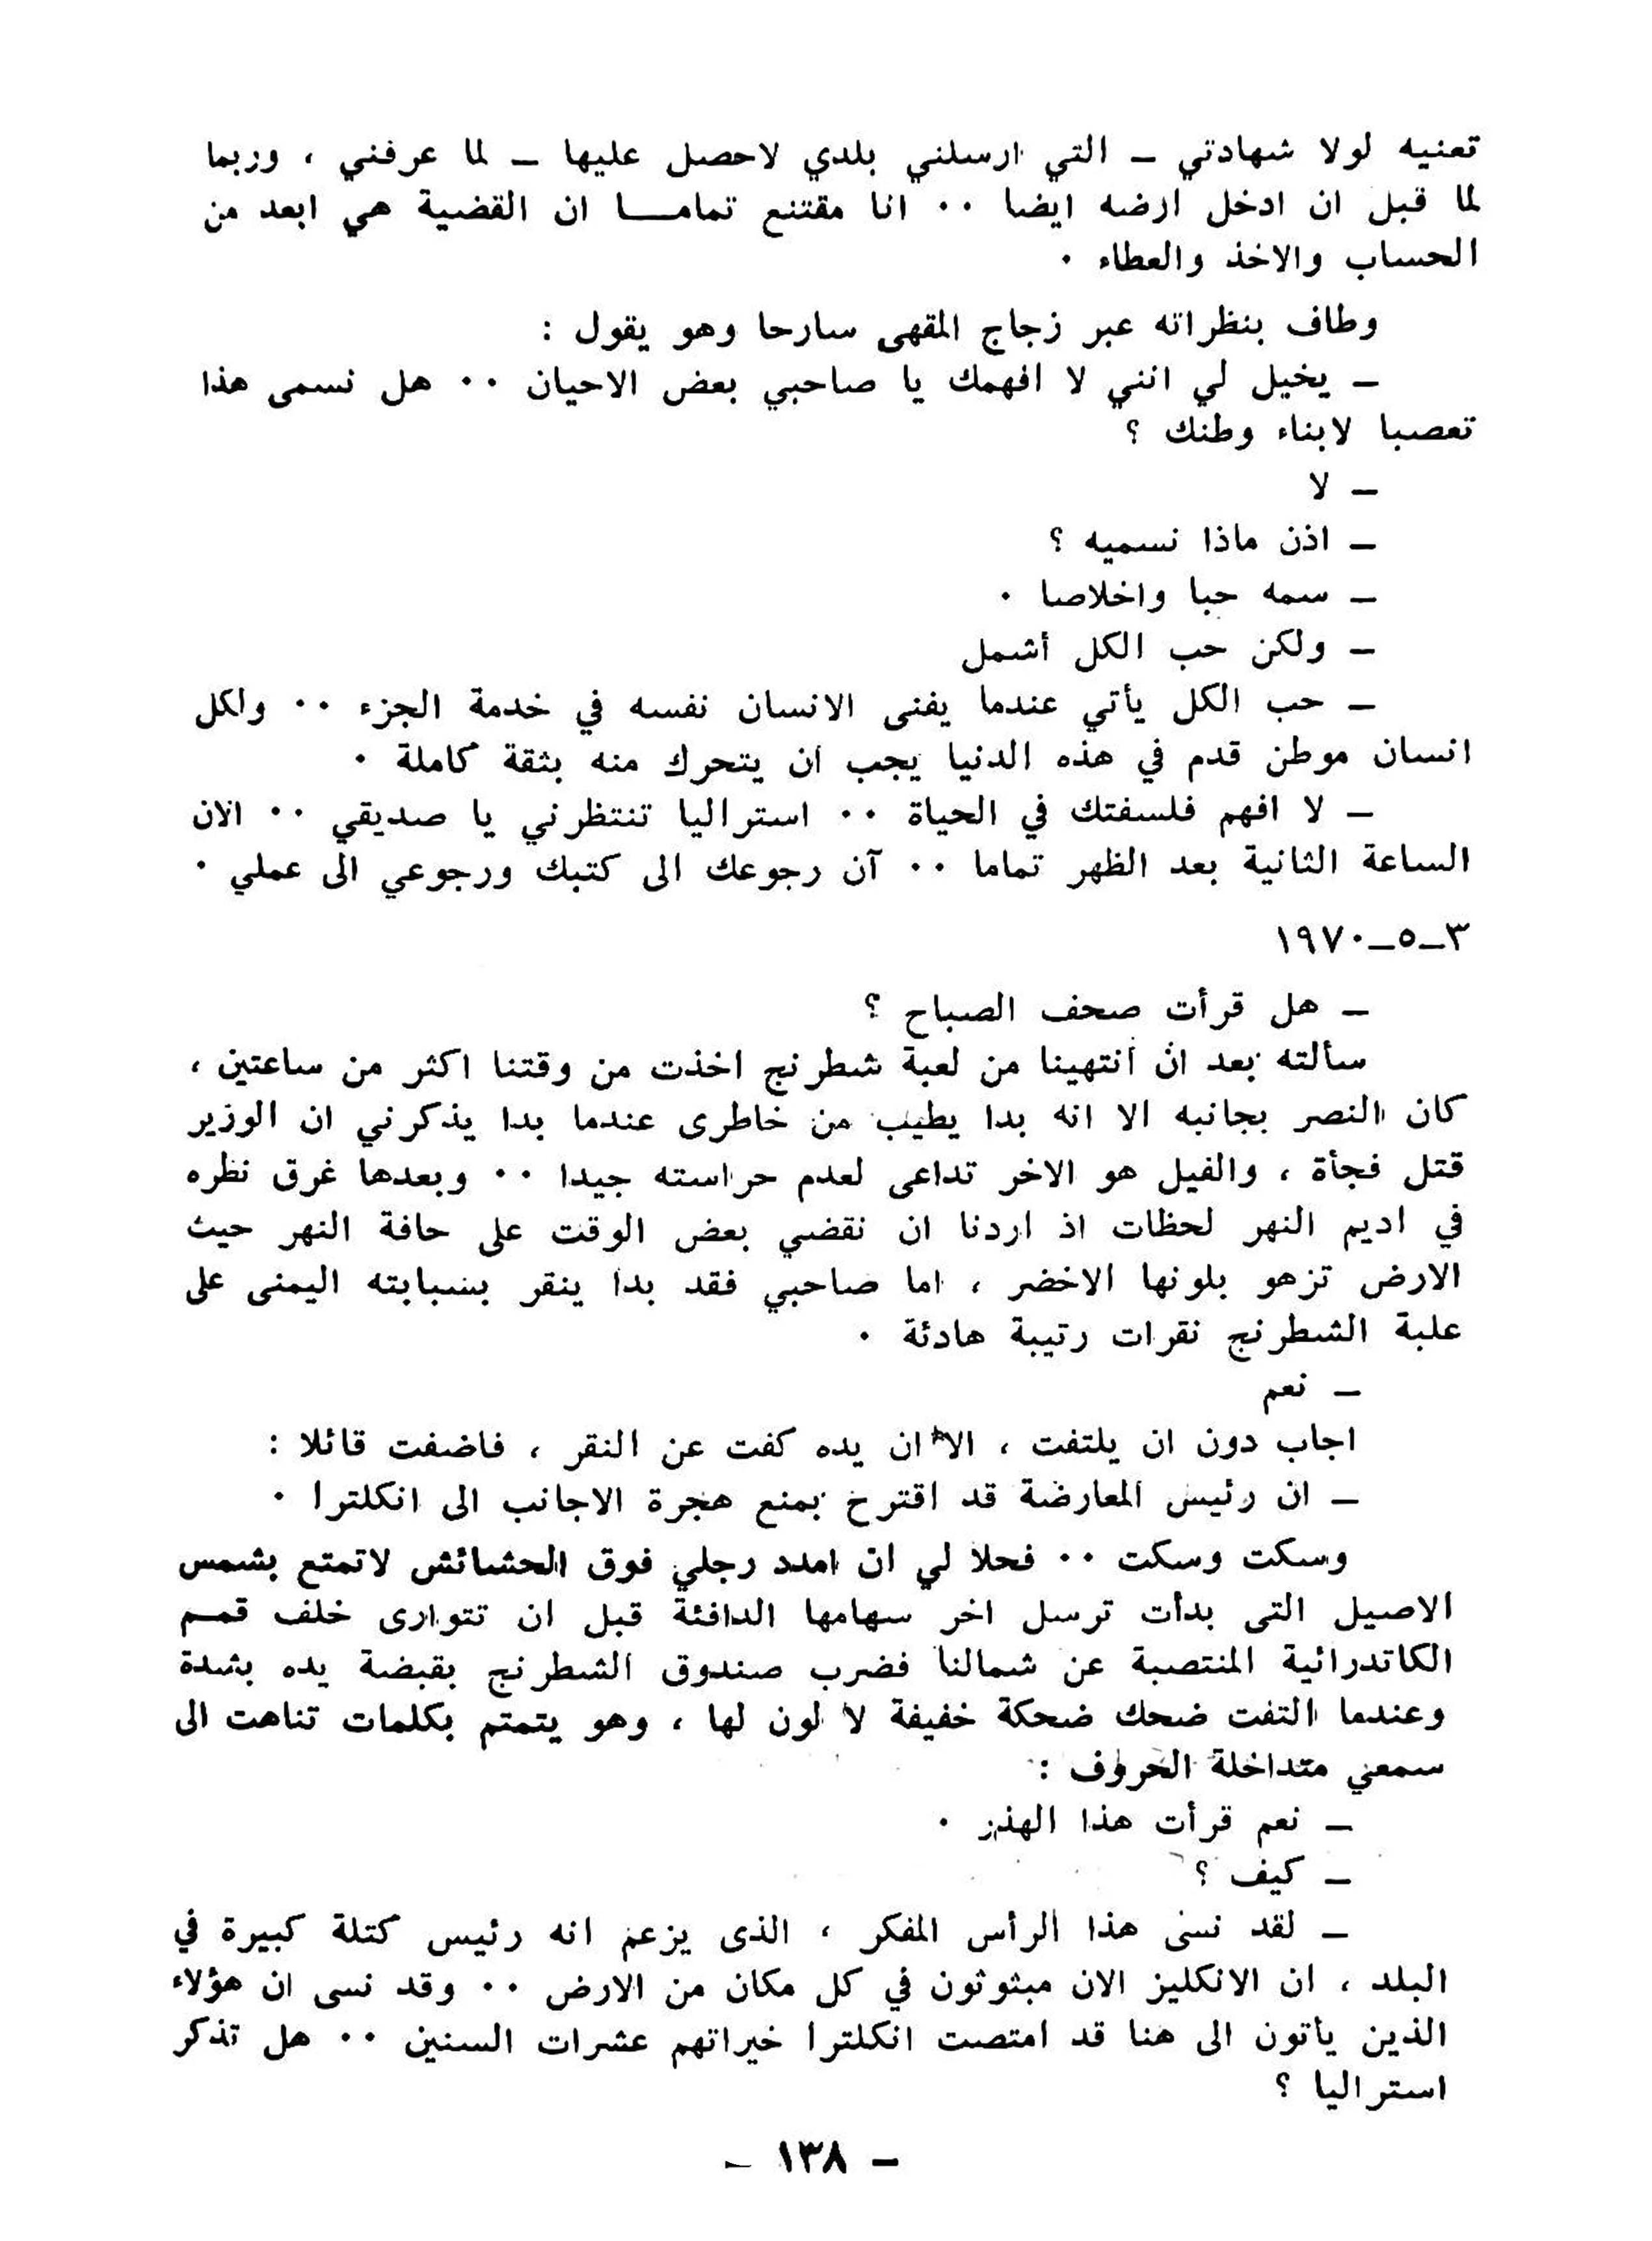 تعنيه لولا شهادتي ــ التي ارسلني بلدي لاحصل عليها ــ لما عرفني ، وربما
لما قبل ان ادخل ارضه ايضا ٠٠ انا مقتنع تمامـــا ان القضية هي ابعد من
الحساب والاخذ والعطاء ٠
وطاف بنظراته عبر زجاج المقهى سارحا وهو يقول :
ــ يخيل لي انني لا افهمك يا صاحبي بعض الاحيان ٠٠ هل نسمى هذا
تعصبا لابناء وطنك ؟
ــ لا
ــ اذن ماذا نسميه ؟
ــ سمه حبا واخلاصا ٠
ــ ولكن حب الكل أشمل
ــ حب الكل يأتي عندما يفنى الانسان نفسه في خدمة الجزء ٠٠ ولكل
انسان موطن قدم في هذه الدنيا يجب ان يتحرك منه بثقة كاملة ٠
ــ لا افهم فلسفتك في الحياة ٠٠ استراليا تنتظرني يا صديقي ٠٠ الان
الساعة الثانية بعد الظهر تماما ٠٠ آن رجوعك الى كتبك ورجوعي الى عملي ٠
٣ــ٥ــ١٩٧٠
ــ هل قرأت صحف الصباح ؟
سألته بعد ان انتهينا من لعبة شطرنج اخذت من وقتنا اكثر من ساعتين ،
كان النصر بجانبه الا انه بدا يطيب من خاطرى عندما بدا يذكرني ان الوزير
قتل فجأة ، والفيل هو الاخر تداعى لعدم حراسته جيدا ٠٠ وبعدها غرق نظره
في اديم النهر لحظات اذ اردنا ان نقضي بعض الوقت على حافة النهر حيث
الارض تزهو بلونها الاخضر ، اما صاحبي فقد بدا ينقر بسبابته اليمنى على
علبة الشطرنج نقرات رتيبة هادئة ٠
ــ نعم
اجاب دون ان يلتفت ، الا ان يده كفت عن النقر ، فاضفت قائلا :
ــ ان رئيس المعارضة قد اقترح بمنع هجرة الاجانب الى انكلترا ٠
وسكت وسكت ٠٠ فحلا لي ان امدد رجلي فوق الحشائش لاتمتع بشمس
الاصيل التى بدأت ترسل اخر سهامها الدافئة قبل ان تتوارى خلف قمـم
الكاتدرائية المنتصبة عن شمالنا فضرب صندوق الشطرنج بقبضة يده بشدة
وعندما التفت ضحك ضحكة خفيفة لا لون لها ، وهو يتمتم بكلمات تناهت الى
سمعي متداخلة الحروف :
ــ نعم قرأت هذا الهذر ٠
ــ كيف ؟
ــ لقد نسى هذا الرأس المفكر ، الذى يزعم انه رئيس كتلة كبيرة في
البلد ، ان الانكليز الان مبثوثون في كل مكان من الارض ٠٠ وقد نسى ان هؤلاء
الذين ياتون الى هنا قد امتصت انكلترا خيراتهم عشرات السنين ٠٠ هل تذكر
استراليا ؟
ــ ١٣٨ ــ